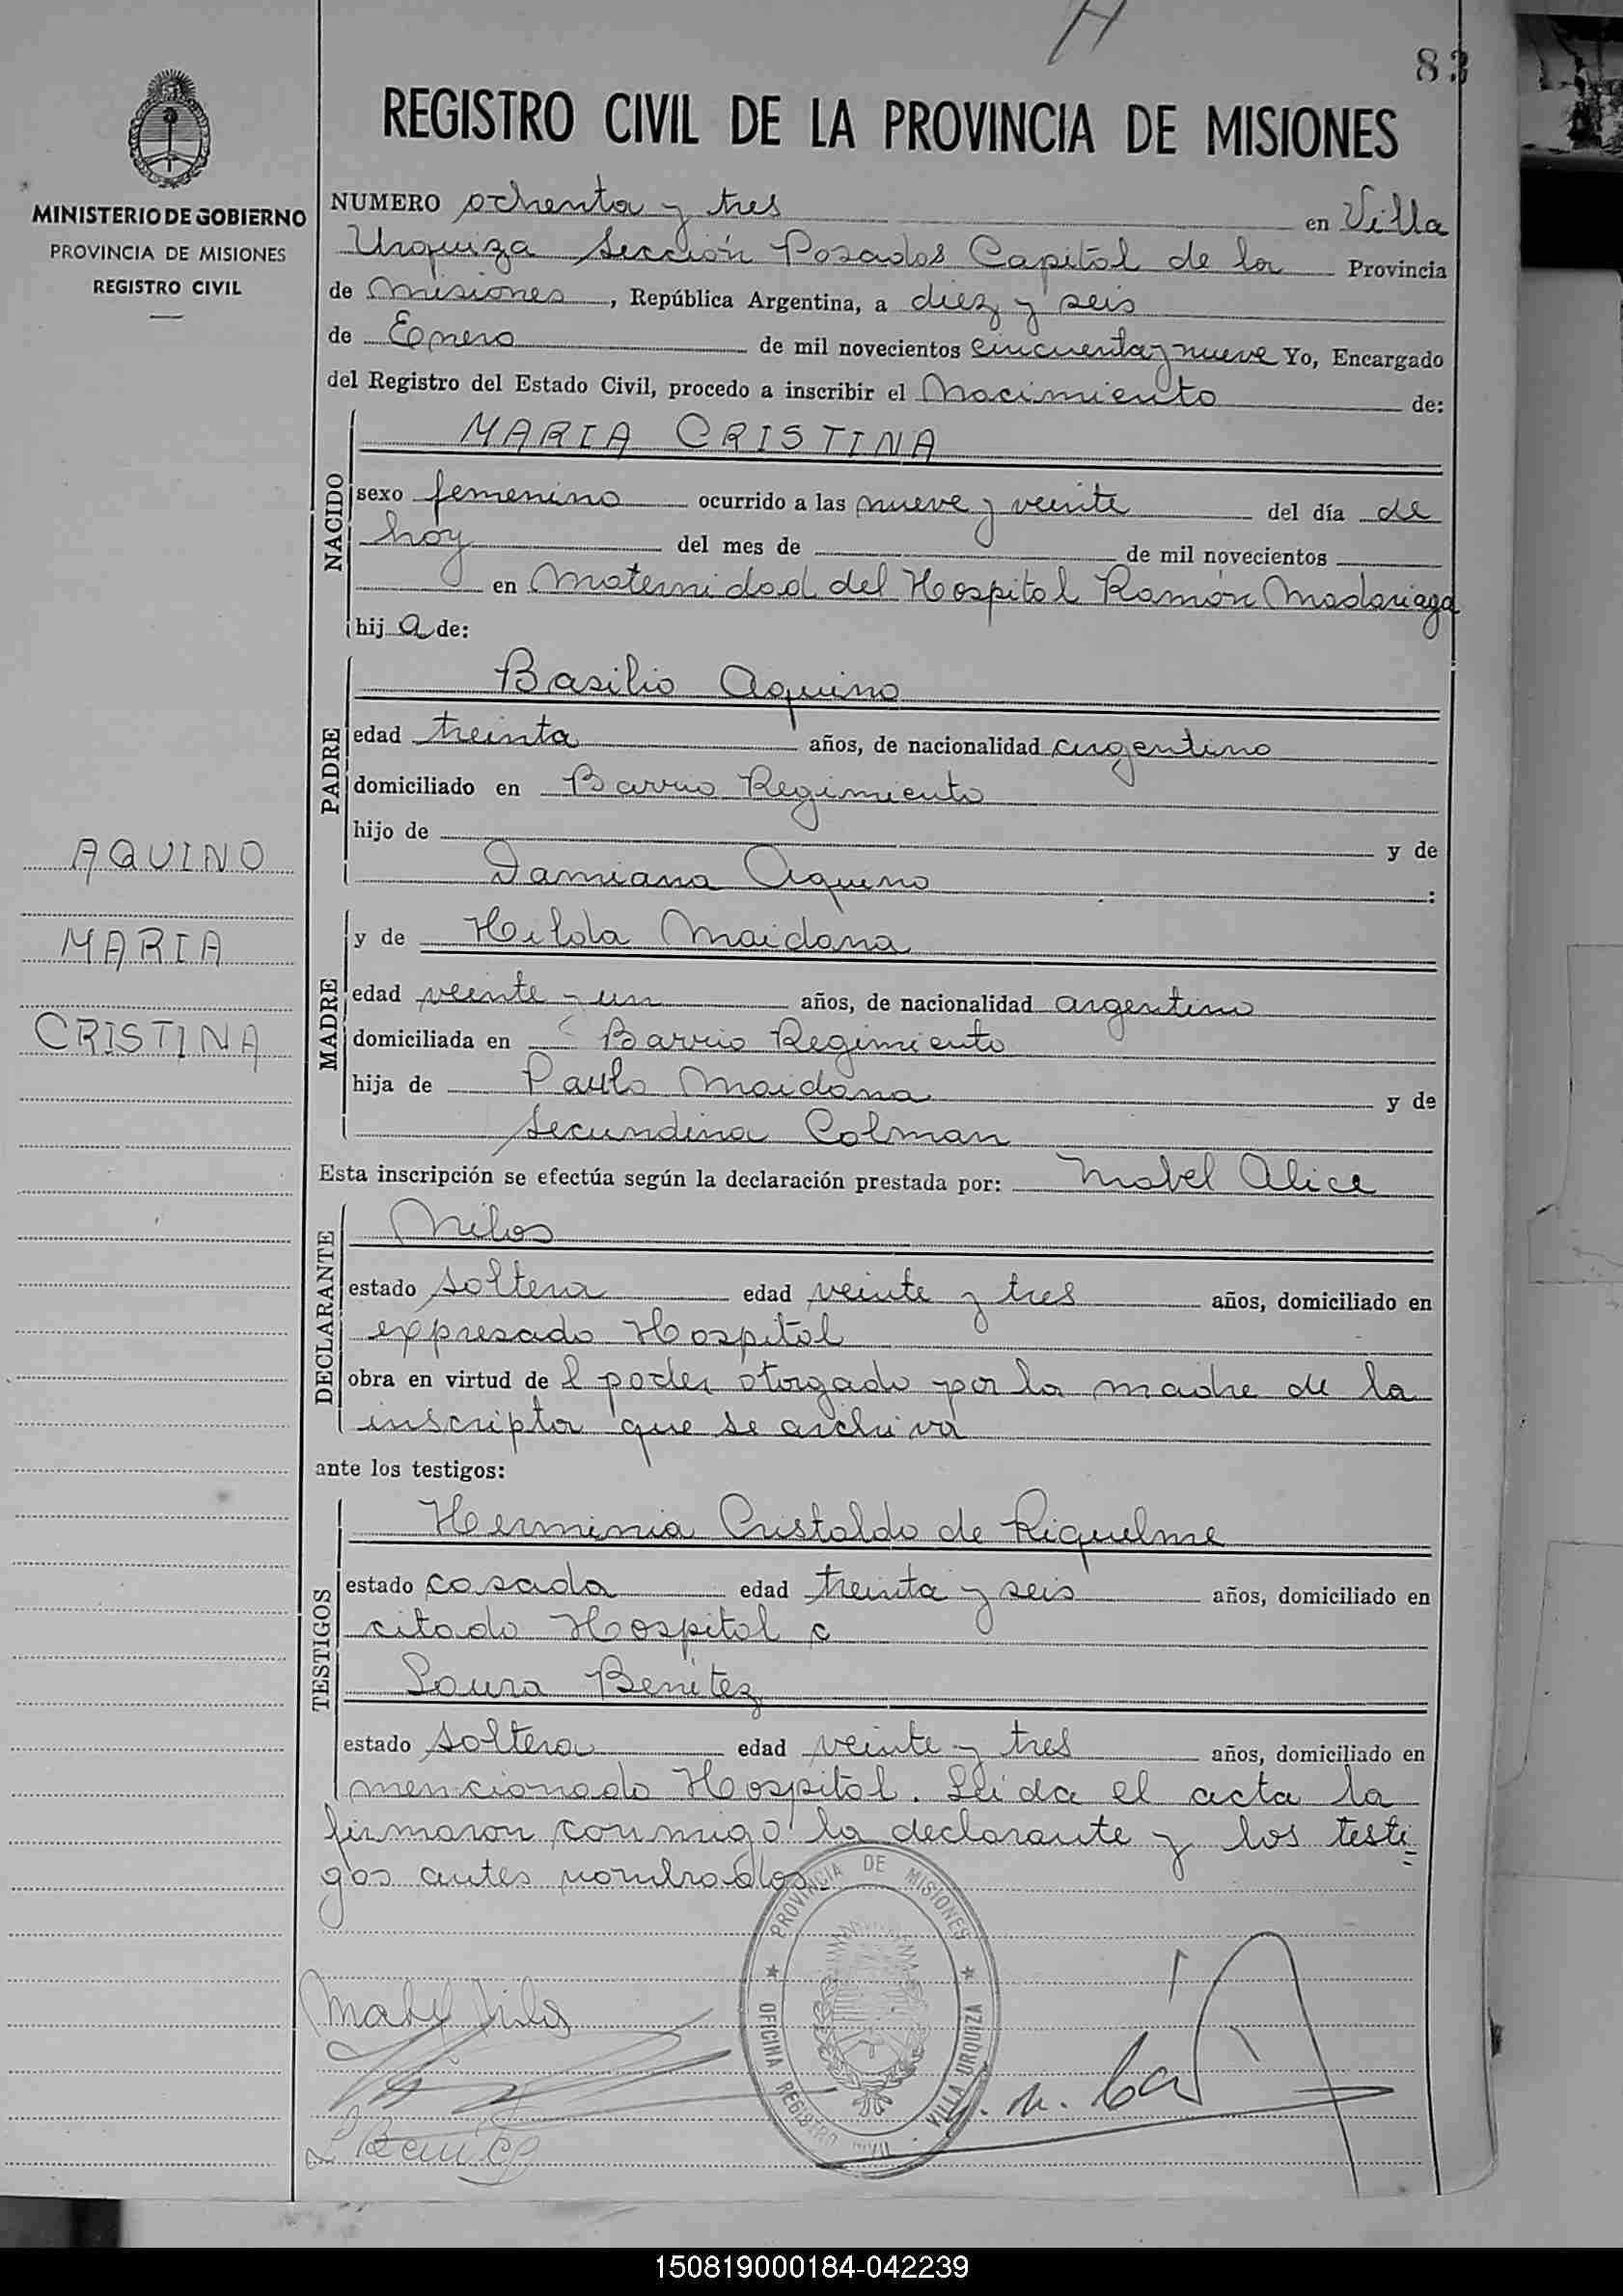 H
83
REGISTRO CIVIL DE LA PROVINCIA DE MISIONES
MINISTERIO DE GOBIERNO
PROVINCIA DE MISIONES
REGISTRO CIVIL
NUMERO ochenta y tres en Villa
Urquiza Sección Posadas Capital de la Provincia
de Misiones, República Argentina, a diez y seis
de Enero de mil novecientos cincuenta y nueve Yo, Encargado
del Registro del Estado Civil, procedo a inscribir el Nacimiento de:
NACIDO
MARIA CRISTINA
sexo femenino ocurrido a las nueve y veinte del día de
hoy del mes de de mil novecientos
en Maternidad del Hospital Ramón Madariaga
hij a de:
PADRE
Basilio Aquino
edad treinta años, de nacionalidad argentino
domiciliado en Barrio Regimiento
hijo de y de
Damiana Aquino :
MADRE
y de Hilda Maidana
edad veinte y un años, de nacionalidad argentina
domiciliada en Barrio Regimiento
hija de Paulo Maidana y de
Secundina Colman
AQUINO
MARIA
CRISTINA
Esta inscripción se efectúa según la declaración prestada por: Mabel Alice
DECLARANTE
Nilos
estado soltera edad veinte y tres años, domiciliado en
expresado Hospital
obra en virtud de l poder otorgado por la madre de la
inscripta que se archiva
ante los testigos:
TESTIGOS
Herminia Cristaldo de Riquelme
estado casada edad treinta y seis años, domiciliado en
citado Hospital
Laura Benitez
estado soltera edad veinte y tres años, domiciliado en
mencionado Hospital. Leida el acta la
firmaron conmigo la declarante y los testi=
gos antes nombrados.
PROVINCIA DE MISIONES
OFICINA REGISTRO CIVIL - VILLA URQUIZA
Mabel Nilos
L Benitez
150819000184-042239